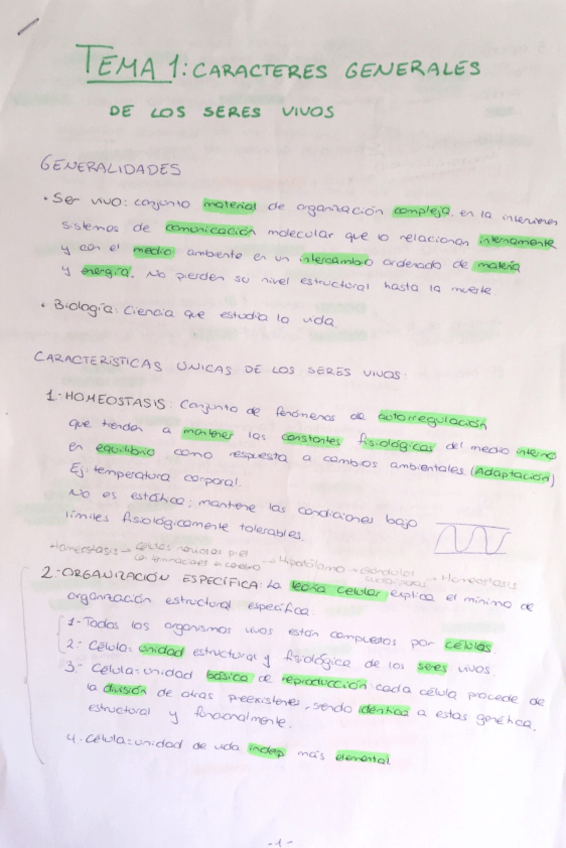 TEMA 1: CARACTERES GENERALES
DE LOS SERES VIVOS
GENERALIDADES
• Ser vivo: conjunto material de organización compleja, en la intervienen
sistemas de comunicación molecular que lo relacionan internamente
y con el medio ambiente en un intercambio ordenado de materia
y energía. No pierden su nivel estructural hasta la muerte
• Biología: Ciencia que estudia la vida.
CARACTERÍSTICAS ÚNICAS DE LOS SERES VIVOS:
1.-HOMEOSTASIS: Conjunto de fenómenos de autorregulación
que tienden a mantener las constantes fisiológicas del medio interno
en equilibrio como respuesta a cambios ambientales (Adaptación)
Ej: temperatura corporal.
No es estática; mantiene las condiciones bajo
límites fisiológicamente tolerables.
Homeostasis → → Hipotálamo → Glándulas → Homeostasis
2.-ORGANIZACIÓN ESPECÍFICA: La teoría celular explica el mínimo de
organización estructural específica:
1.-Todos los organismos vivos están compuestos por células
2.- Célula: unidad estructural y fisiológica de los seres vivos.
3.- Célula: unidad básica de reproducción: cada célula procede de
la división de otras preexistentes, siendo idéntica a estas genética,
estructural y funcionalmente.
4.- Célula: unidad de vida indep más elemental
-1-